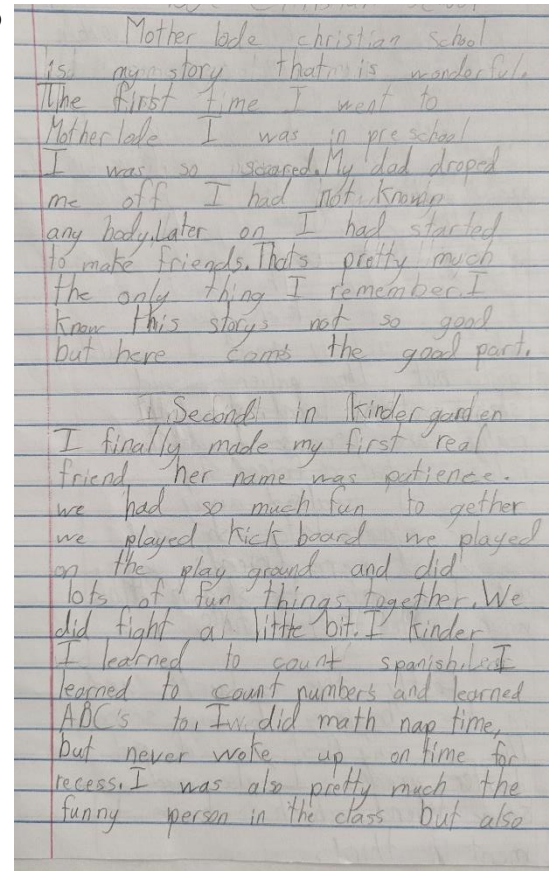 Mother lode christian school
is my story that is wonderful.
The first time I went to
Mother lode I was in pre school
I was so scared. My dad droped
me off I had not known
any body. Later on I had started
to make friends. That's pretty much
the only thing I remember. I
know this storys not so good
but here coms the good part.
Second in kinder garden
I finally made my first real
friend, her name was patience.
we had so much fun to gether
we played kick board we played
on the play ground and did
lots of fun things together. We
did fight a little bit. I kinder
I learned to count spanish. I
learned to count numbers and learned
ABC's to. I did math nap time,
but never woke up on time for
recess. I was also pretty much the
funny person in the class but also